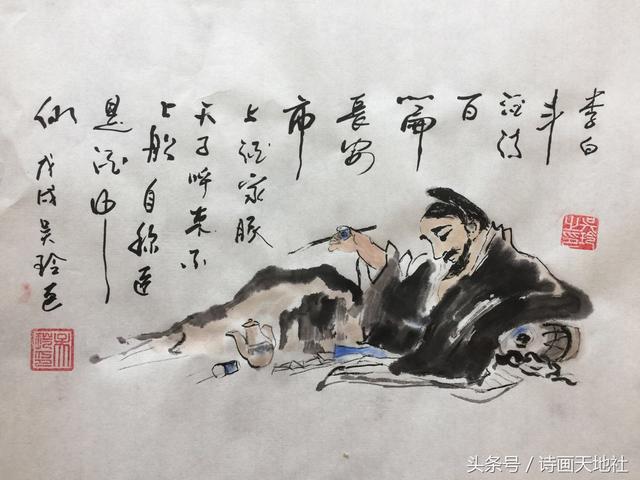 李白
斗
酒诗
百
篇
長安
市
上酒家眠
天子呼来不
上船自称臣
是酒中
仙 戊戌吴玲
吴玲之印
头条号 / 诗画天地社